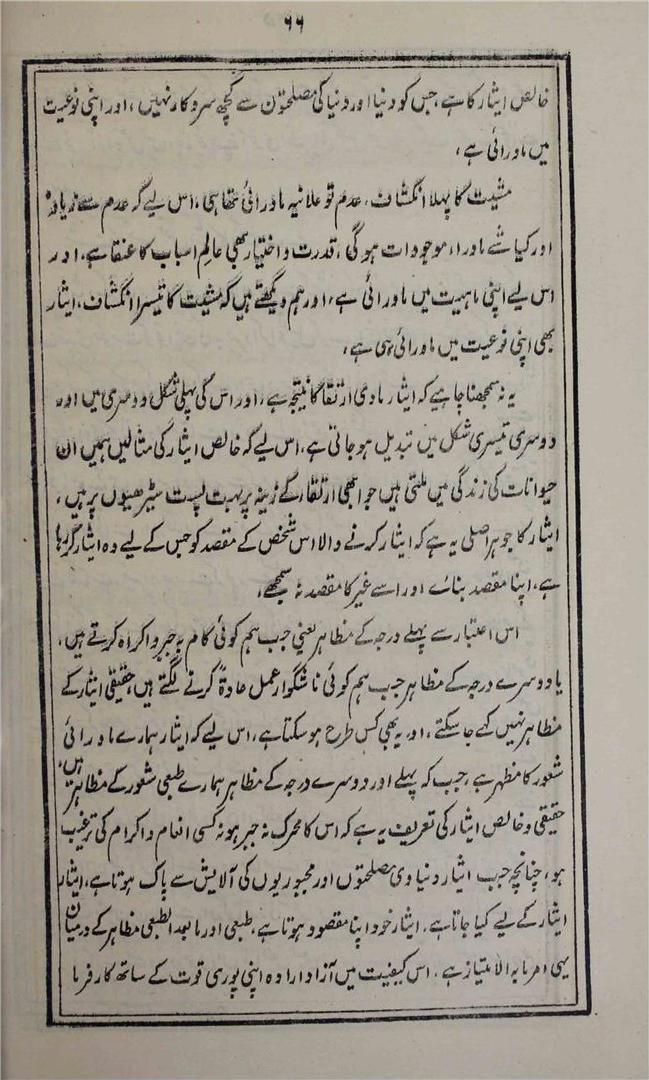 ۶۶
خالص ایثار کا ہے، جس کو دنیا اور دنیا کی مصلحتوں سے کچھ سروکار نہیں، اور اپنی نوعیت
میں ماورائی ہے،
مشیت کا پہلا انکشاف، عدم تو علانیہ ماورائی تھا ہی، اس لیے کہ عدم سے زیادہ
اور کیا شے ماوراء موجودات ہو گی، قدرت و اختیار بھی عالم اسباب کا عنقا ہے، اور
اس لیے اپنی ماہیت میں ماورائی ہے، اور ہم دیکھتے ہیں کہ مشیت کا تیسرا انکشاف، ایثار
بھی اپنی نوعیت میں ماورائی ہی ہے،
یہ نہ سمجھنا چاہیے کہ ایثار مادی ارتقا کا نتیجہ ہے، اور اس کی پہلی شکل دوسری میں اور
دوسری تیسری شکل میں تبدیل ہو جاتی ہے، اس لیے کہ خالص ایثار کی مثالیں ہمیں ان
حیوانات کی زندگی میں ملتی ہیں جو ابھی ارتقاء کے زینہ پر بہت پست سیڑھیوں پر ہیں،
ایثار کا جوہر اصلی یہ ہے کہ ایثار کرنے والا اس شخص کے مقصد کو جس کے لیے وہ ایثار کر رہا
ہے، اپنا مقصد بنائے اور اسے غیر کا مقصد نہ سمجھے،
اس اعتبار سے پہلے درجہ کے مظاہر یعنی جب ہم کوئی کام بہ جبر و اکراہ کرتے ہیں،
یا دوسرے درجہ کے مظاہر جب ہم کوئی ناشگوار عمل عادۃً کرنے لگتے ہیں، حقیقی ایثار کے
مظاہر نہیں کہے جا سکتے، اور یہ بھی کس طرح ہو سکتا ہے، اس لیے کہ ایثار ہمارے ماورائی
شعور کا مظہر ہے، جب کہ پہلے اور دوسرے درجہ کے مظاہر ہمارے طبعی شعور کے مظاہر ہیں،
حقیقی و خالص ایثار کی تعریف یہ ہے کہ اس کا محرک نہ جبر ہو نہ کسی انعام و اکرام کی ترغیب
ہو، چنانچہ جب ایثار دنیاوی مصلحتوں اور مجبوریوں کی آلایش سے پاک ہوتا ہے، ایثار
ایثار کے لیے کیا جاتا ہے، ایثار خود اپنا مقصود ہوتا ہے، طبعی اور مابعد الطبعی مظاہر کے درمیان
یہی امر مابہ الامتیاز ہے، اس کیفیت میں آزاد ارادہ اپنی پوری قوت کے ساتھ کار فرما